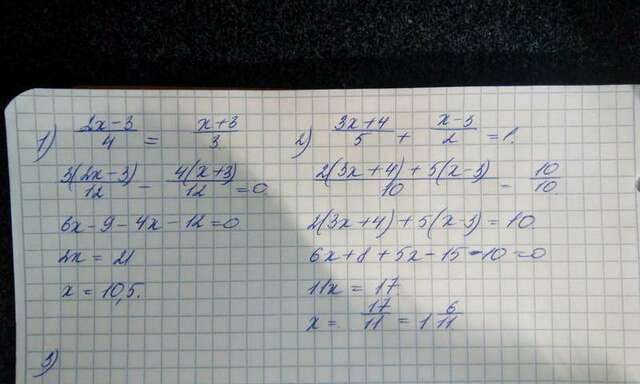 1) (2x-3)/4 = (x+3)/3
3(2x-3)/12 - 4(x+3)/12 = 0
6x-9-4x-12=0
2x = 21
x = 10,5.
2) (3x+4)/5 + (x-3)/2 = 1.
(2(3x+4)+5(x-3))/10 = 10/10.
2(3x+4)+5(x-3)=10.
6x+8+5x-15-10=0
11x = 17
x = 17/11 = 1 6/11.
3)